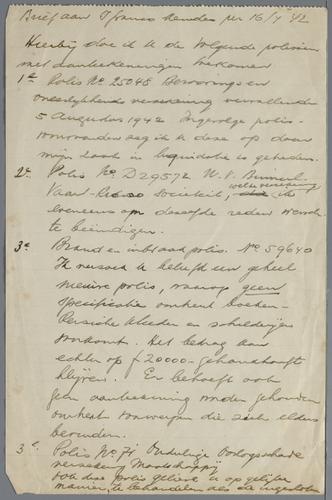 Brief aan Assurantie per 16/7 '42
Hierbij doe ik U de volgende polissen
met aanteekeningen toekomen
1e Polis No 25048 Beroovings en
vervallende
5 Augustus 1942 Ingevolge polis-
voorwaarden zeg ik deze op daar
mijn zaak in liquidatie is getreden.
2e Polis No D29572 N.V. Binnen-
Vaart Risico Societeit, welke verzekering ik
eveneens om dezelfde reden wensch
te beeindigen.
3e Brand en inbraakpolis. No 59640
Ik verzoek U beleefd een geheel
nieuwe polis, waarop geen
specificatie omtrent boeken-
Perzische kleeden en schilderijen
voorkomt. Het bedrag kan
echter op ƒ 20000- gehandhaafd
blijven. Er behoeft ook
geen aanteekening worden gehouden
omtrent voorwerpen die zich elders
bevinden.
3e Polis No Onderlinge Oorlogsschade
verzekering Maatschappij
ook deze polis gelieve U op gelijke
manier te behandelen als de